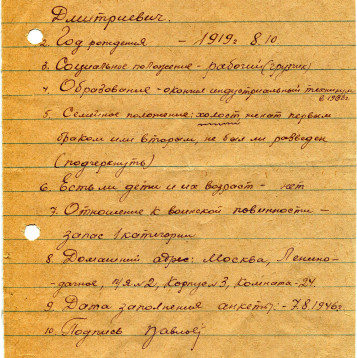 Дмитриевич.
2. Год рождения - 1919г 8.10.
3. Социальное положение - рабочий (грузчик)
4. Образование - окончил индустриальный техникум
в 1938г.
5. Семейное положение: холост женат первым
браком или вторым, не был ли разведен
(подчеркнуть)
6. Есть ли дети и их возраст - нет
7. Отношение к воинской повинности -
запас 1 категории
8. Домашний адрес: Москва, Ленино-
дачное, п/я №2, Корпус 3, Комната - 24.
9. Дата заполнения анкеты: - 7.8.1946г.
10. Подпись Павлов